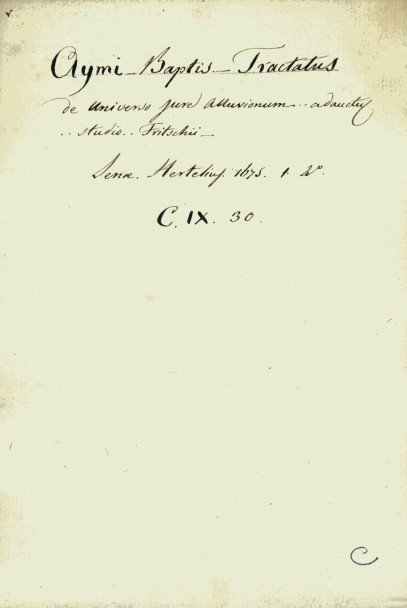 Aymi_Baptis_Tractatus
de universo jure alluvionum.. adauctus
.. studio.. Fritschii_
Jenæ. Hertelius. 1675. 1. 4°.
C. IX. 30.
C